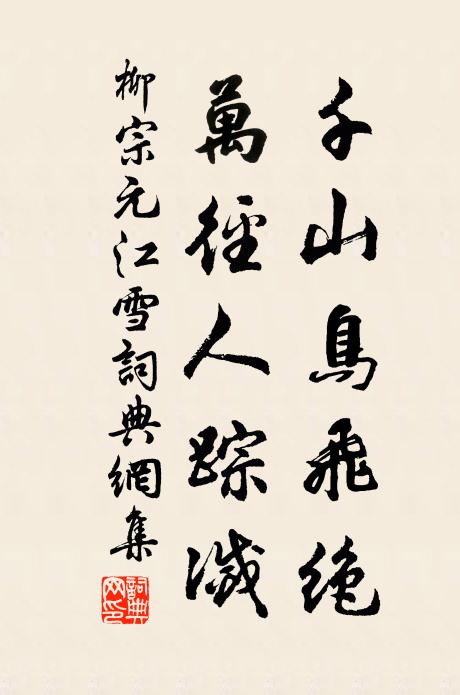 千山鳥飛絶
萬徑人踪滅
柳宗元江雪詞典網集
詞典網印